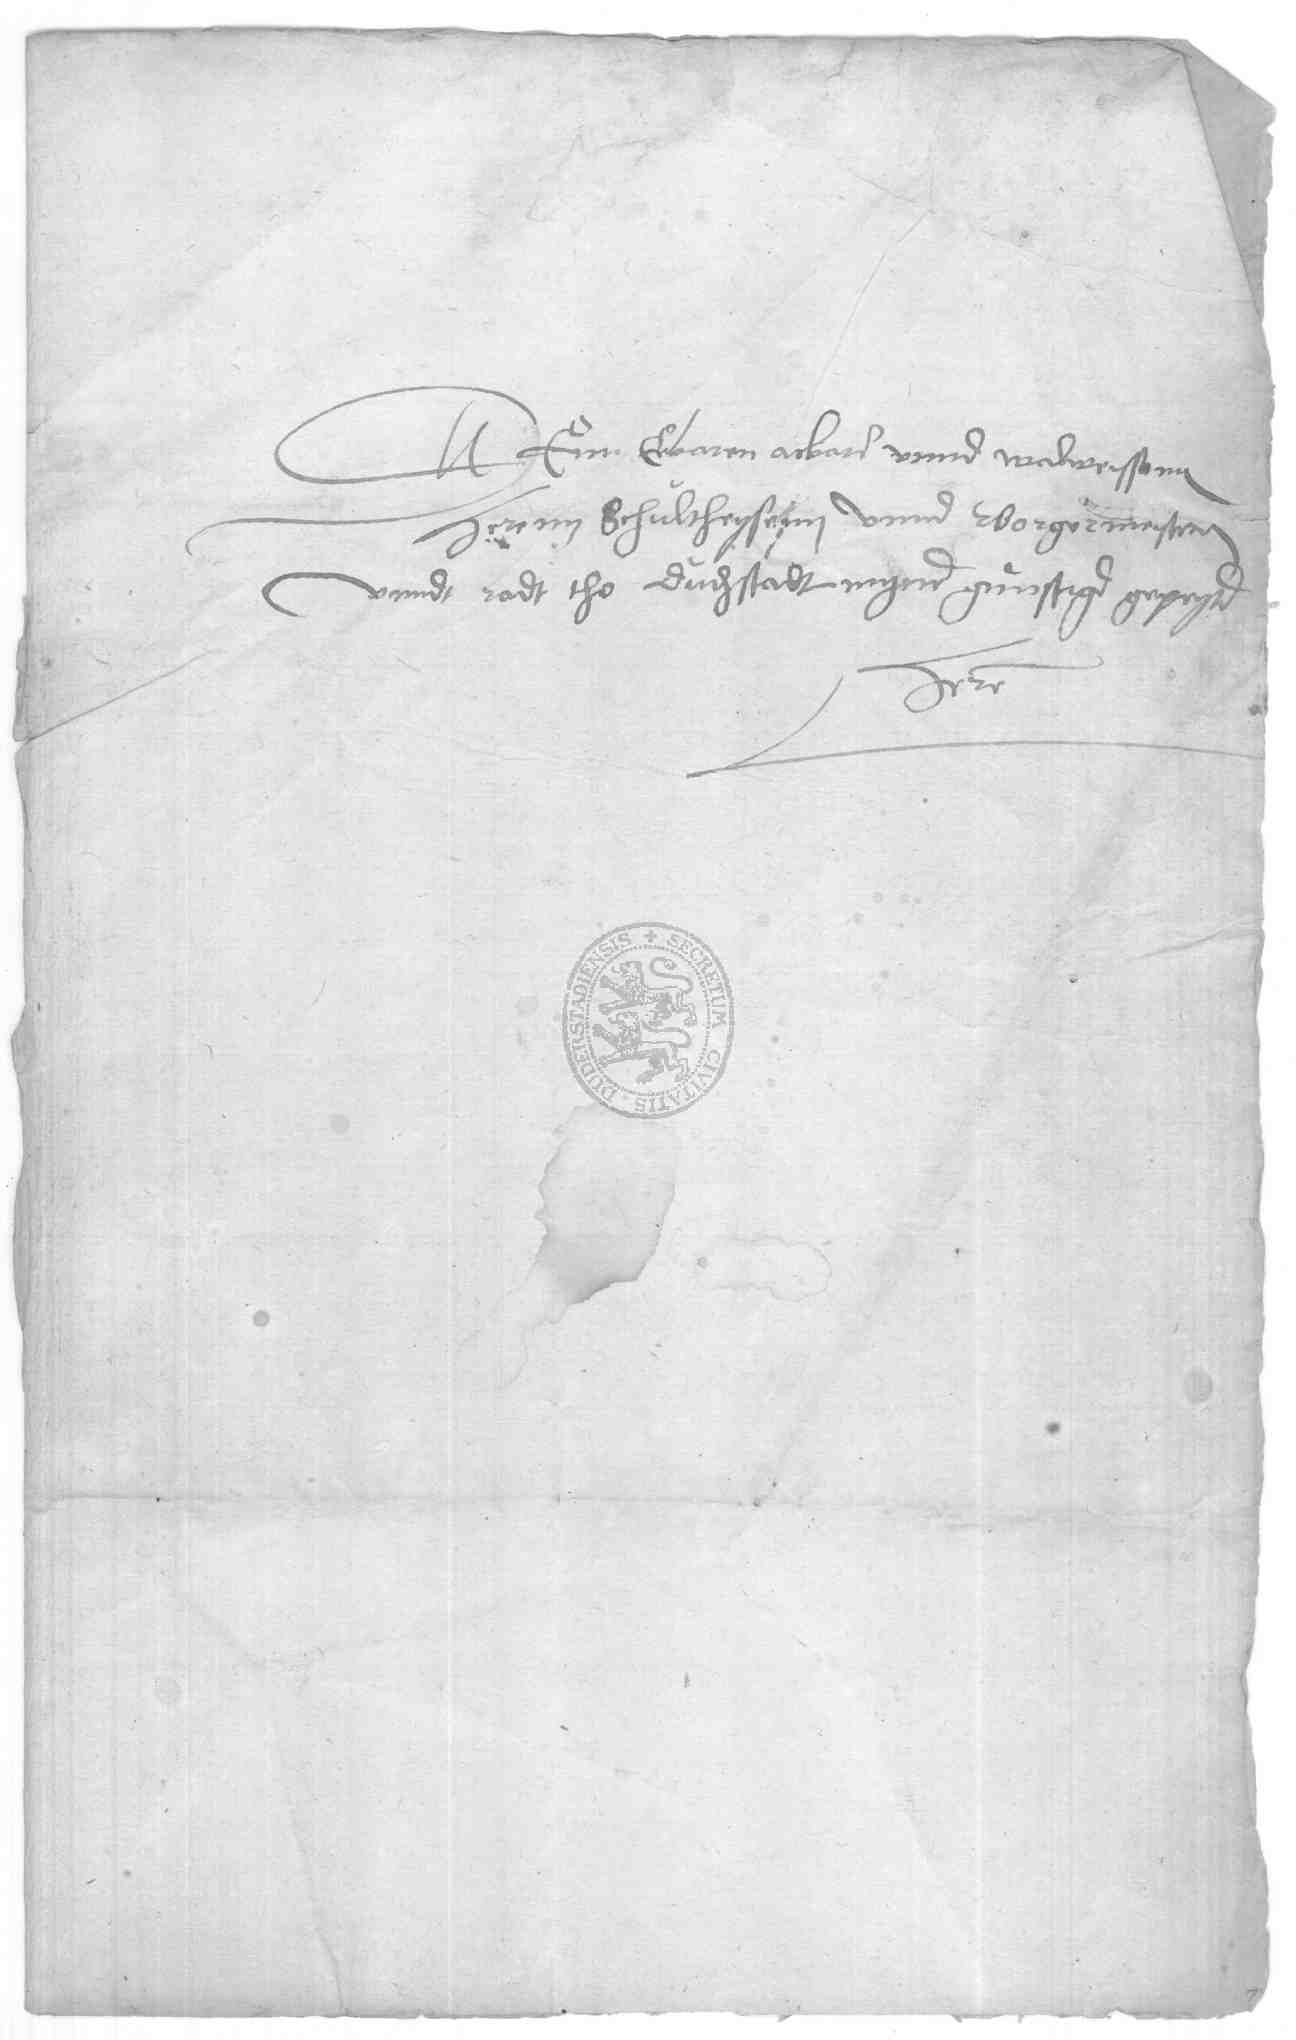 Den Erbaren acbarn vnnd wolweissenn
Herenn Schultheysenn vnnd Borgermeistere
vnndt radt tho Duderstadt mynen gunstigen
Here
SECRETUM CIVITATIS DUDERSTADIENSIS